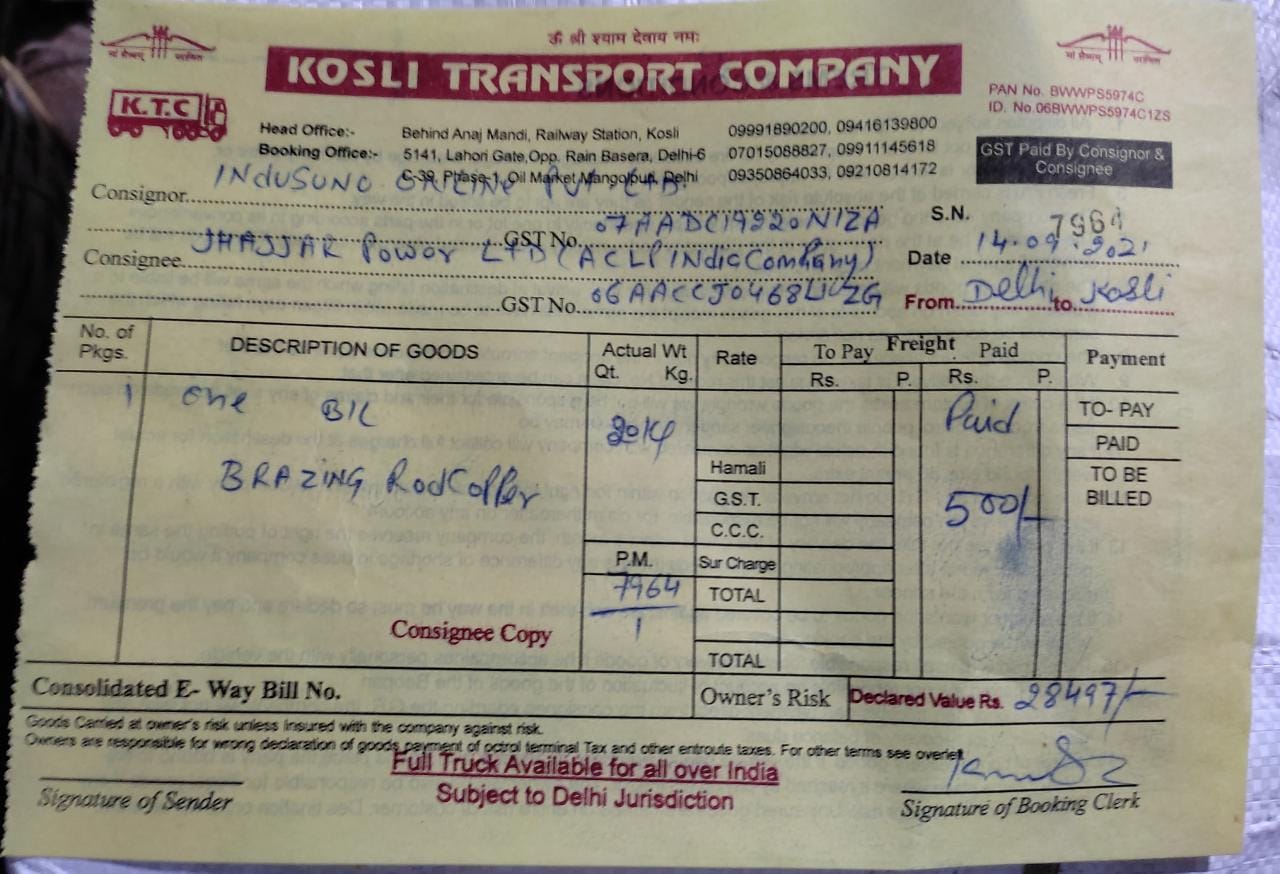 ॐ श्री श्याम देवाय नमः
KOSLI TRANSPORT COMPANY
K.T.C
PAN No. BWWPS5974C
ID. No.06BWWPS5974C1ZS
Head Office:- Behind Anaj Mandi, Railway Station, Kosli 09991890200, 09416139800
Booking Office:- 5141, Lahori Gate,Opp. Rain Basera, Delhi-6 07015088827, 09911145618
C-39, Phase-1, Oil Market Mangolpuri, Delhi 09350864033, 09210814172
GST Paid By Consignor &
Consignee
Consignor INDUSUNO ONLINE PVT LTD.
GST No. 07AADCI9220N1ZA
S.N. 7964
Consignee JHAJJAR Power LTD (ACLP India Company)
Date 14.09.2021
GST No. 06AACCJ0468L1ZG
From Delhi to Kosli
No. of
Pkgs. DESCRIPTION OF GOODS Actual Wt
Qt. Kg. Rate Freight
To Pay Paid
Rs. P. Rs. P. Payment
1 One
20kg Paid TO- PAY
PAID
BRAZING Rod Copper Hamali
G.S.T. 500/- TO BE
BILLED
C.C.C.
P.M. Sur Charge
7964 TOTAL
1
Consignee Copy
TOTAL
Consolidated E- Way Bill No. Owner's Risk Declared Value Rs. 28497/-
Goods Carried at owner's risk unless insured with the company against risk.
Owners are responsible for wrong declaration of goods payment of octroi terminal Tax and other entroute taxes. For other terms see overlef
Full Truck Available for all over India
Subject to Delhi Jurisdiction
Signature of Sender Signature of Booking Clerk